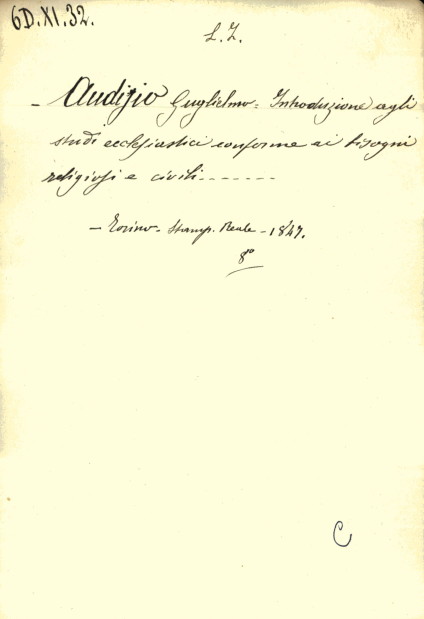 6D.XI.32.
L.Z.
- Audisio Guglielmo = Introduzione agli
studi ecclesiastici conforme ai bisogni
religiosi e civili -------
- Torino - Stamp. Reale - 1847.
8º
C